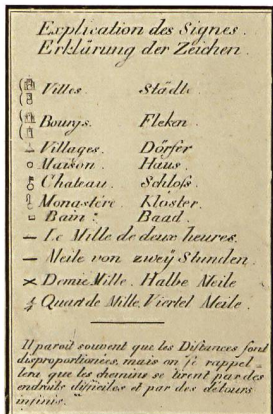 Explication des Signes.
Erklärung der Zeichen.
Villes. Städte.
Bourgs. Fleken.
Villages. Dörfer
Maison. Haus.
Chateau. Schloſs.
Monastére. Kloster.
Bain. Baad.
Le Mille de deux heures.
Meile von zweÿ Stunden.
Demie Mille. Halbe Meile
Quart de Mille. Viertel Meile.
Il paroit souvent que les Distances sont
disproportionées, mais on se rappel_
lera que les chemins se tirent par des
endroits difficiles et par des détours
infinis.